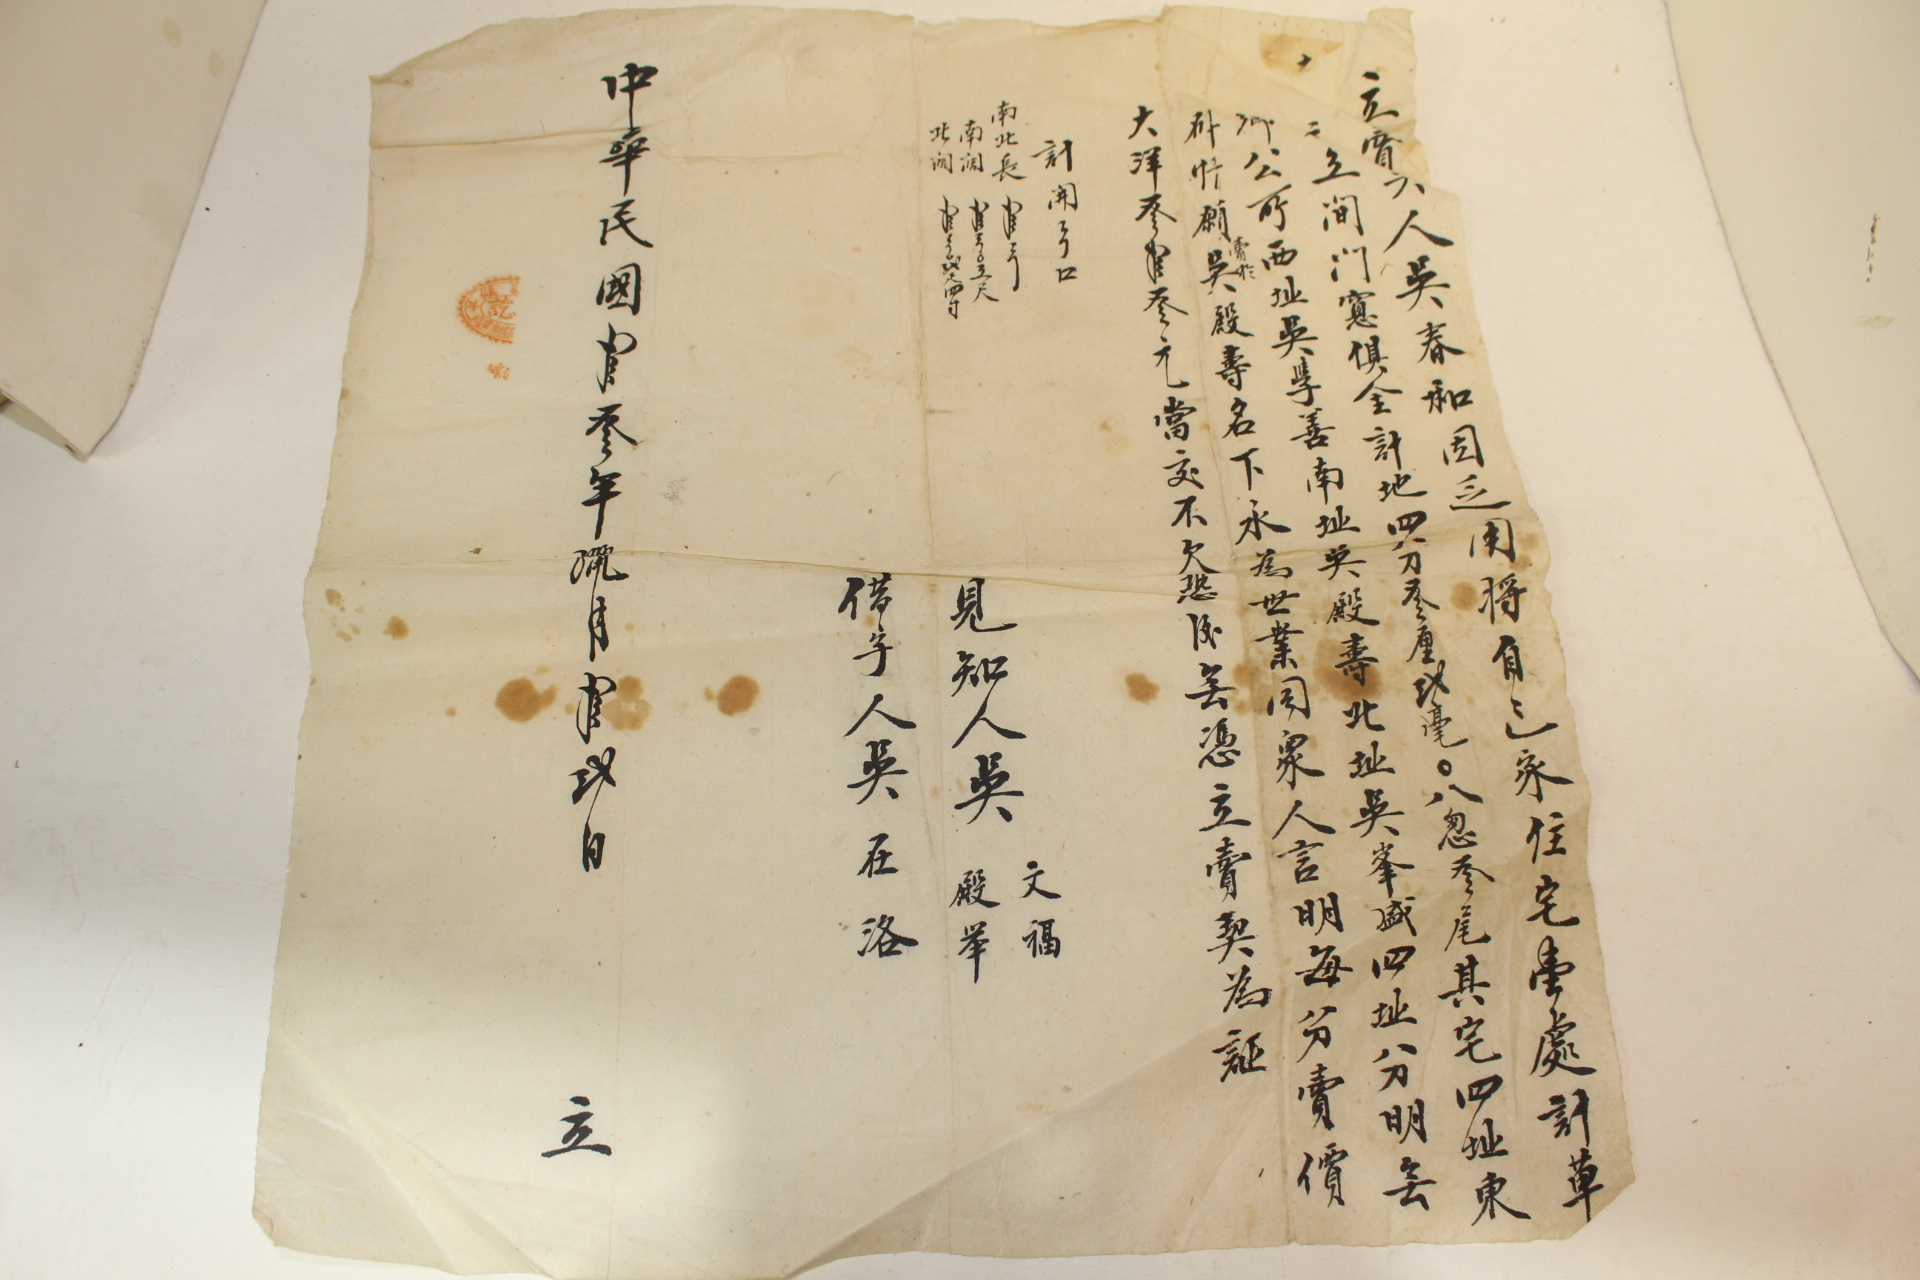 立賣人吳春和因乏用將自己家住宅壹處計草
立間門窓俱全計地四分叁厘弍毫〇八忽叁尾其宅四址東
公所西址吳學善南址吳殿壽北址吳峯盛四址八分明無
情願賣於吳殿壽名下永為世業同衆人言明每分賣價
大洋叁拾叁元當交不欠恐後無憑立賣契為証
計開弓口
南北長
南濶
北濶
見知人吳 文福 殿举
借字人吳在洛
中華民國拾叁年臘月拾弍日 立